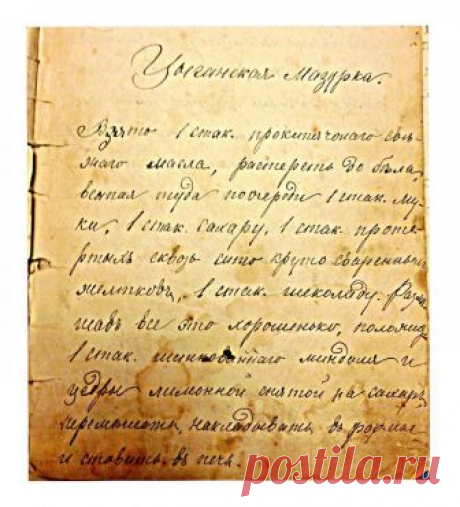 Цыганская Мазурка.
Взято 1 стак. прокипячонаго свѣ-
жаго масла, растереть до бѣла,
всыпая туда поочереди 1 стак. му-
ки, 1 стак. сахару, 1 стак проте-
ртыхъ сквозь сито круто сваренныхъ
желтковъ, 1 стак. шеколаду. Разм
шавъ все это хорошенько, положить
1 стак. шинкованнаго миндаля и
цедры лимонной снятой на сахаръ,
перемѣшать, накладывать въ формы
и ставить въ печь.
postila.ru